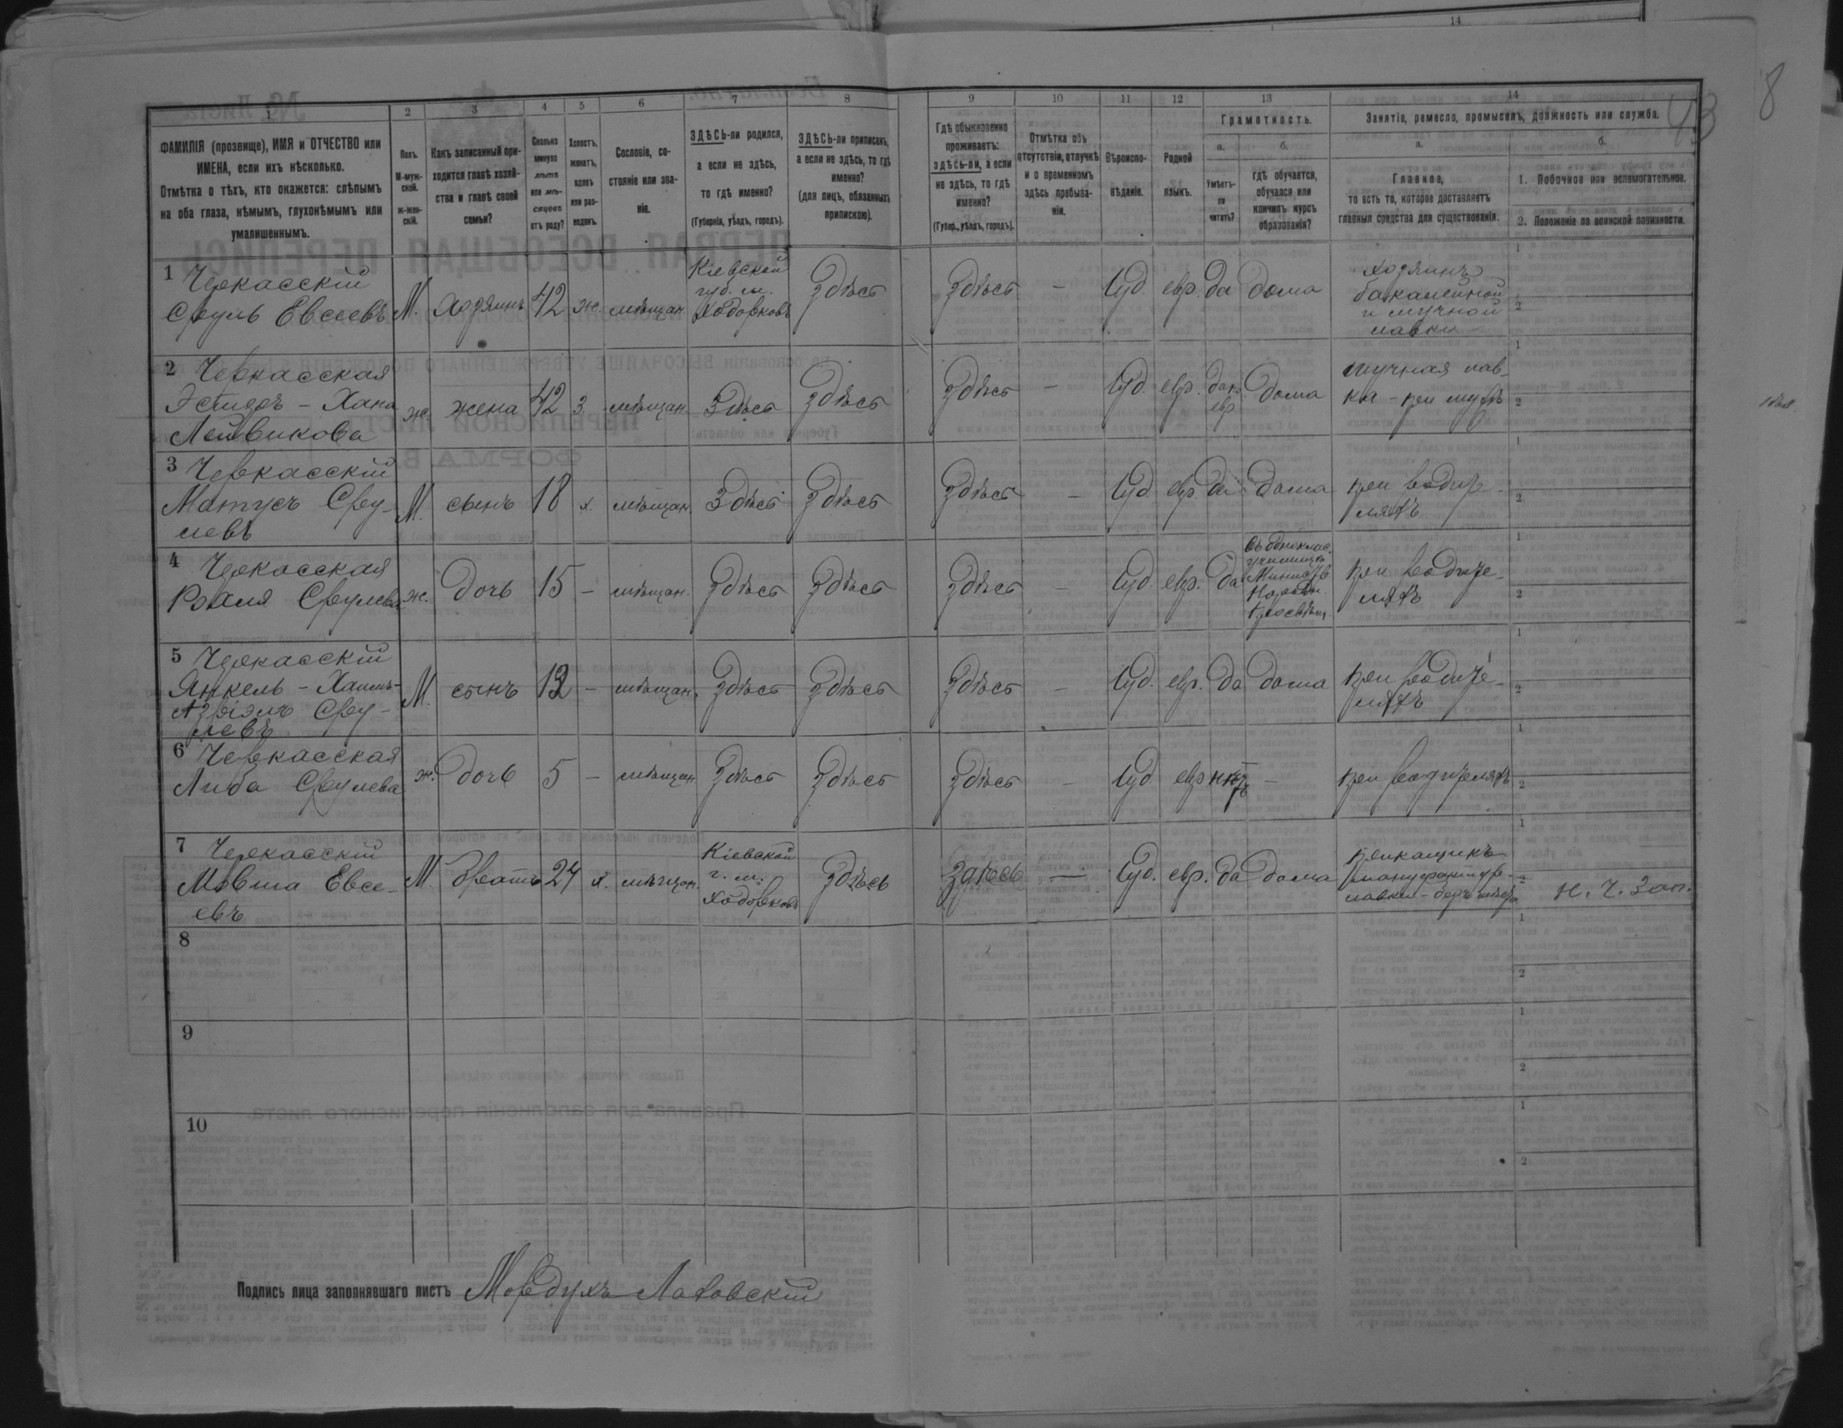 14
8
43
1 2 3 4 5 6 7 8 9 10 11 12 13 14
ФАМИЛІЯ (прозвище), ИМЯ и ОТЧЕСТВО или
ИМЕНА, если ихъ нѣсколько.
Отмѣтка о тѣхъ, кто окажется: слѣпымъ
на оба глаза, нѣмымъ, глухонѣмымъ или
умалишеннымъ.
Полъ.
М-муж-
ской.
ж-жен-
скій.
Какъ записанный при-
ходится главѣ хозяй-
ства и главѣ своей
семьи?
Сколько
минуло
лѣтъ
или мѣ-
сяцевъ
отъ роду?
Холостъ,
женатъ,
вдовъ
или раз-
веденъ.
Сословіе, со-
стояніе или зва-
ніе.
ЗДѢСЬ-ли родился,
а если не здѣсь,
то гдѣ именно?
(Губернія, уѣздъ, городъ).
ЗДѢСЬ-ли приписанъ,
а если не здѣсь, то гдѣ
именно?
(для лицъ, обязанныхъ
припискою).
Гдѣ обыкновенно
проживаетъ:
здѣсь-ли, а если
не здѣсь, то гдѣ
именно?
(Губер., уѣздъ, городъ).
Отмѣтка объ
отсутствіи, отлучкѣ
и о временномъ
здѣсь пребыва-
ніи.
Вѣроиспо-
вѣданіе.
Родной
языкъ.
Грамотность.
а.
Умѣетъ-
ли
читать?
б.
гдѣ обучается,
обучался или
кончилъ курсъ
образованія?
Занятіе, ремесло, промыселъ, должность или служба.
а.
Главное,
то есть то, которое доставляетъ
главныя средства для существованія.
б.
1. Побочное или вспомогательное.
2. Положеніе по воинской повинности.
1 Черкасскій
Сруль Евсеевъ
М. хозяинъ 42 ж. мѣщан.
Кіевской
губ. м.
Ходорковъ
здѣсь здѣсь — Іуд. евр. да дома
хозяинъ
бакалейной
и мучной
лавки
2 Черкасская
Эстеръ - Хана
Лейвикова
ж. жена 42 з. мѣщан. Здѣсь здѣсь здѣсь — Іуд. евр.
дома
мучная лав-
ка - при мужѣ
3 Черкасскій
Матусъ Сру-
левъ
М. сынъ 18 х. мѣщан. Здѣсь здѣсь здѣсь — Іуд. евр. да дома
при родите-
ляхъ
4 Черкасская
Рэйля Срулева
ж. дочь 15 — мѣщан. здѣсь здѣсь здѣсь — Іуд. евр. да
въ одноклас.
училищѣ
Минист.
Народн.
Просвѣщ.
при родите-
ляхъ
5 Черкасскій
Янкель - Хаимъ-
Азріэль Сру-
левъ
М. сынъ 13 — мѣщан. здѣсь здѣсь здѣсь — Іуд. евр. да дома
при родите-
ляхъ
6 Черкасская
Либа Срулева
ж. дочь 5 — мѣщан. здѣсь здѣсь здѣсь — Іуд. евр. нѣтъ —
при родителяхъ
7 Черкасскій
Мовша Евсе-
евъ
М. братъ 24 х. мѣщан.
Кіевской
г. м.
Ходорковъ
здѣсь здѣсь — Іуд. евр. да дома
прикащикъ
мануфактур.
лавки - безъ мѣста
Н. Ч. Зап.
8
9
10
Подпись лица заполнявшаго листъ Мордухъ Лаховскій